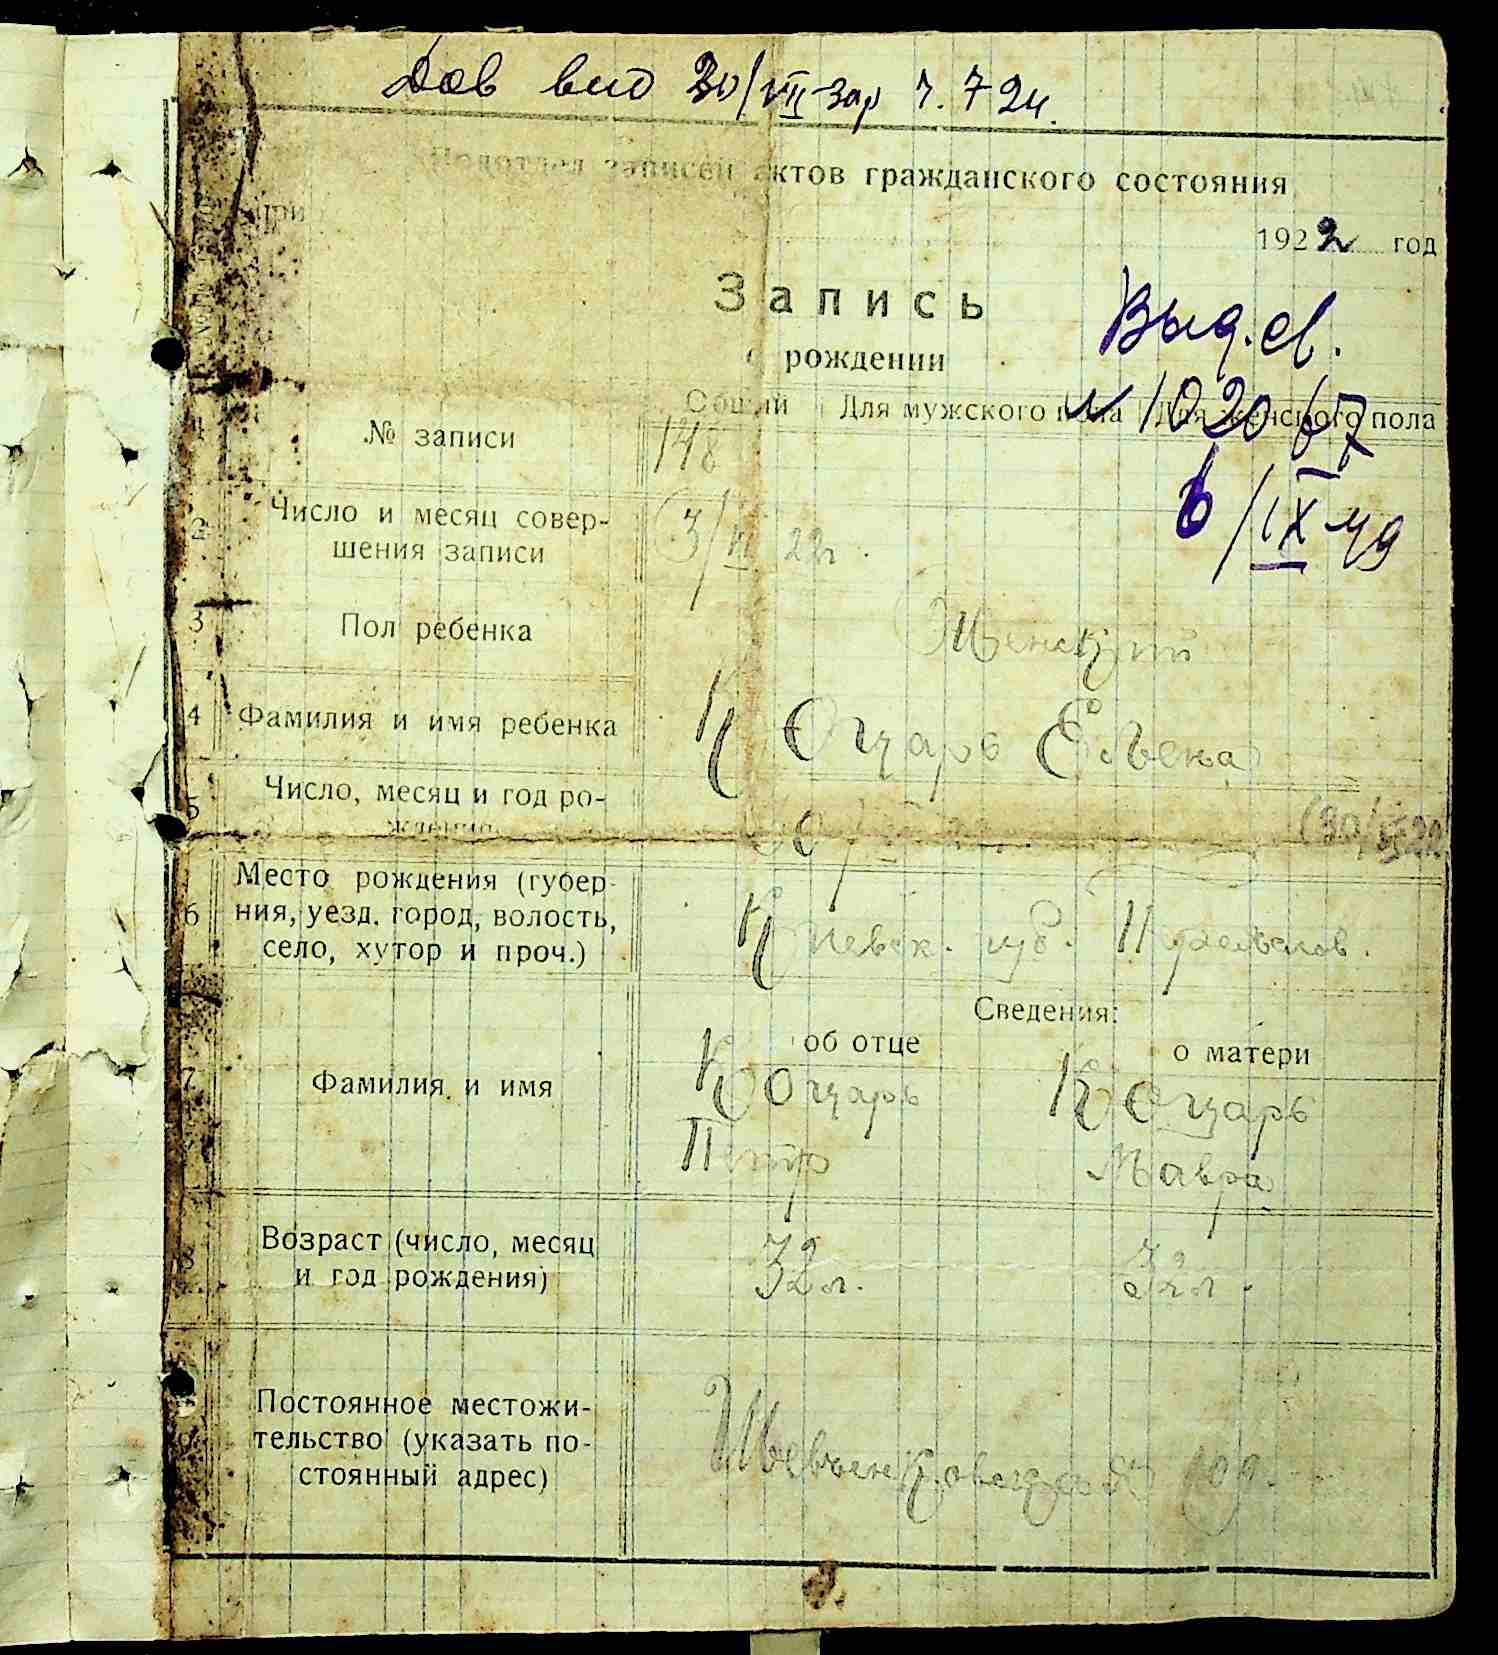 Дов вид 30/VII зар ч. 724.
Подотдел записей актов гражданского состояния
при
1922 год
Запись
о рождении
Выд. св.
Общий Для мужского пола Для женского пола
N 102067
6/IX 49
1 № записи 148
2 Число и месяц совер-
шения записи 3/VI 22г.
3 Пол ребенка Женский
4 Фамилия и имя ребенка Коцарь Елена
5 Число, месяц и год ро-
ждения 30/
6 Место рождения (губер-
ния, уезд, город, волость,
село, хутор и проч.) Киевск. губ.
Сведения:
об отце о матери
7 Фамилия и имя Коцарь Коцарь
Петр Мавра
8 Возраст (число, месяц
и год рождения) 32 л. 32 л.
9 Постоянное местожи-
тельство (указать по-
стоянный адрес)